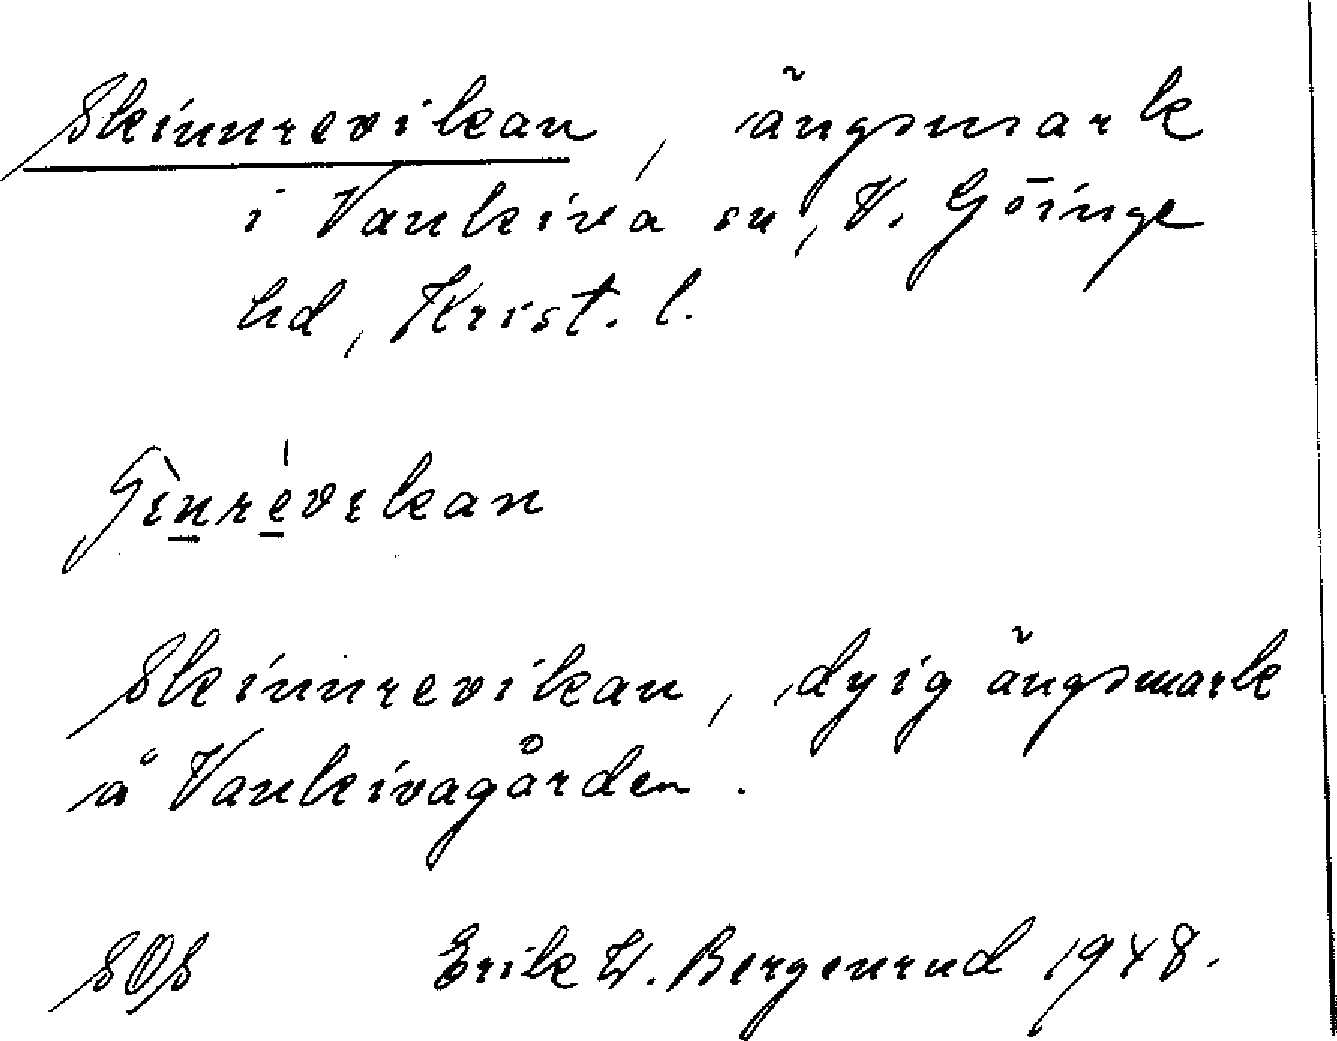 Skinnrevikan, ängsmark
i Vankiva sn, V. Göinge
hd, Krist. l.
Skinnrevikan, dyig ängsmark
å Vankivagården.
SOS Erik W. Bergenrud 1948.